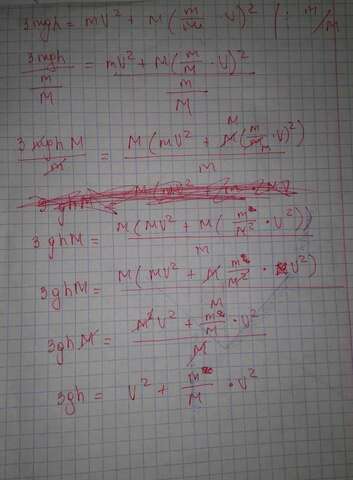 3mgh = mV² + M(m/M · V)² (: m/M
3mgh / (m/M) = (mV² + M(m/M · V)²) / (m/M)
3mghM / m = M(mV² + M(m/M · V)²) / m
3ghM = M(MV² + M(m²/M² · V²)) / M
3ghM = M(MV² + M m²/M² · V²)
3ghM = (M²V² + m²/M · V²) / M
3gh = V² + m²/M · V²